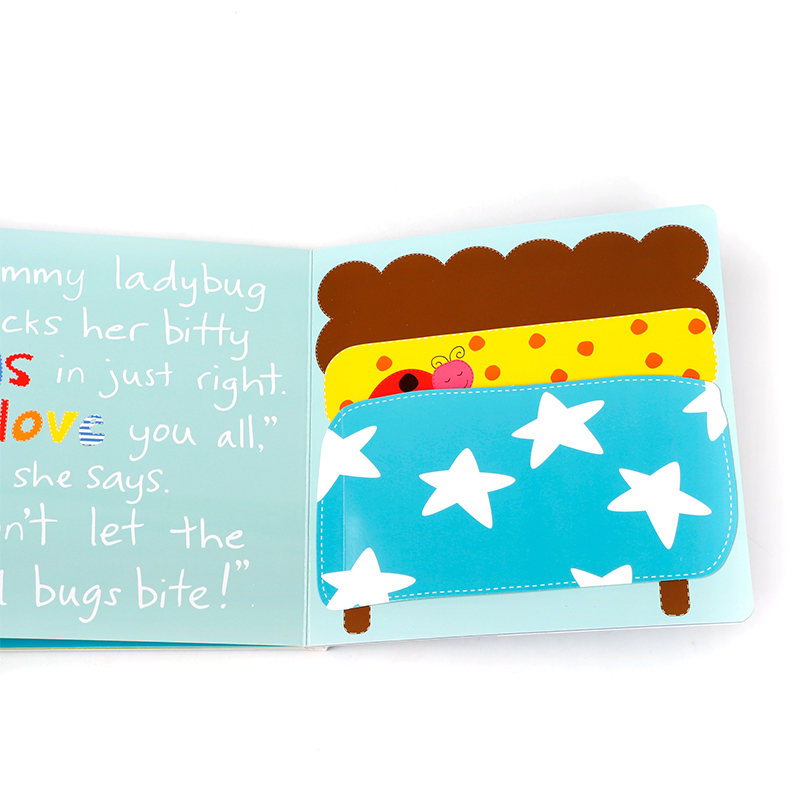 mmy ladybug
cks her bitty
s in just right.
love you all,"
she says.
n't let the
bugs bite!".